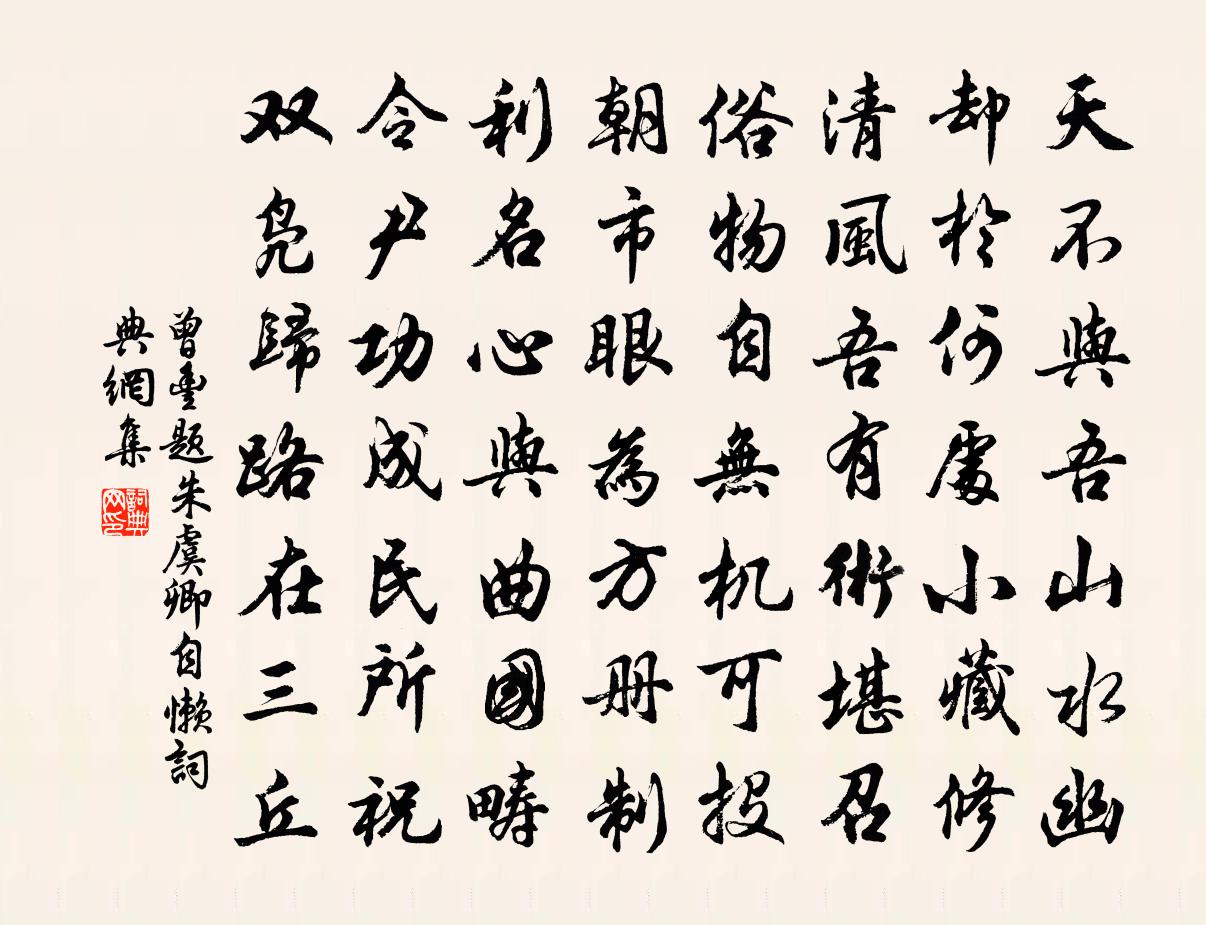 天不與吾山水幽
却於何處小藏修
清風吾有術堪召
俗物自無机可投
朝市眼為方册制
利名心與曲國疇
令尹功成民所祝
双凫歸路在三丘
曾豐题朱虞卿自懒詞
典網集
詞典
网印